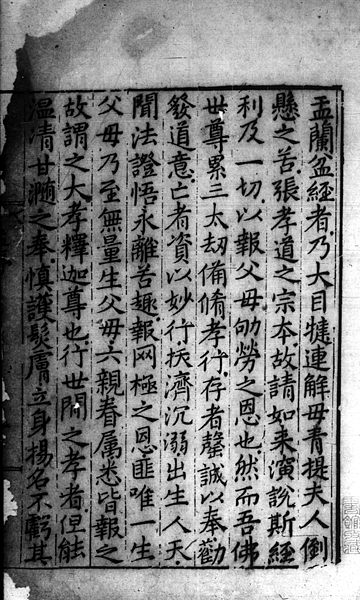 盂蘭盆經者乃大目犍連解母青提夫人倒
懸之苦張孝道之宗本故請如来演說斯經
利及一切以報父母劬勞之恩也然而吾佛
世尊累三大劫俻脩孝行存者罄誠以奉勸
發道意亡者資以妙行扶濟沉溺出生人天
聞法證悟永離苦趣報网極之恩匪唯一生
父母乃至無量生父母六親眷属悉皆報之
故謂之大孝釋迦尊也行世間之孝者但能
温清甘㵼之奉慎護髮膚立身揚名不虧其